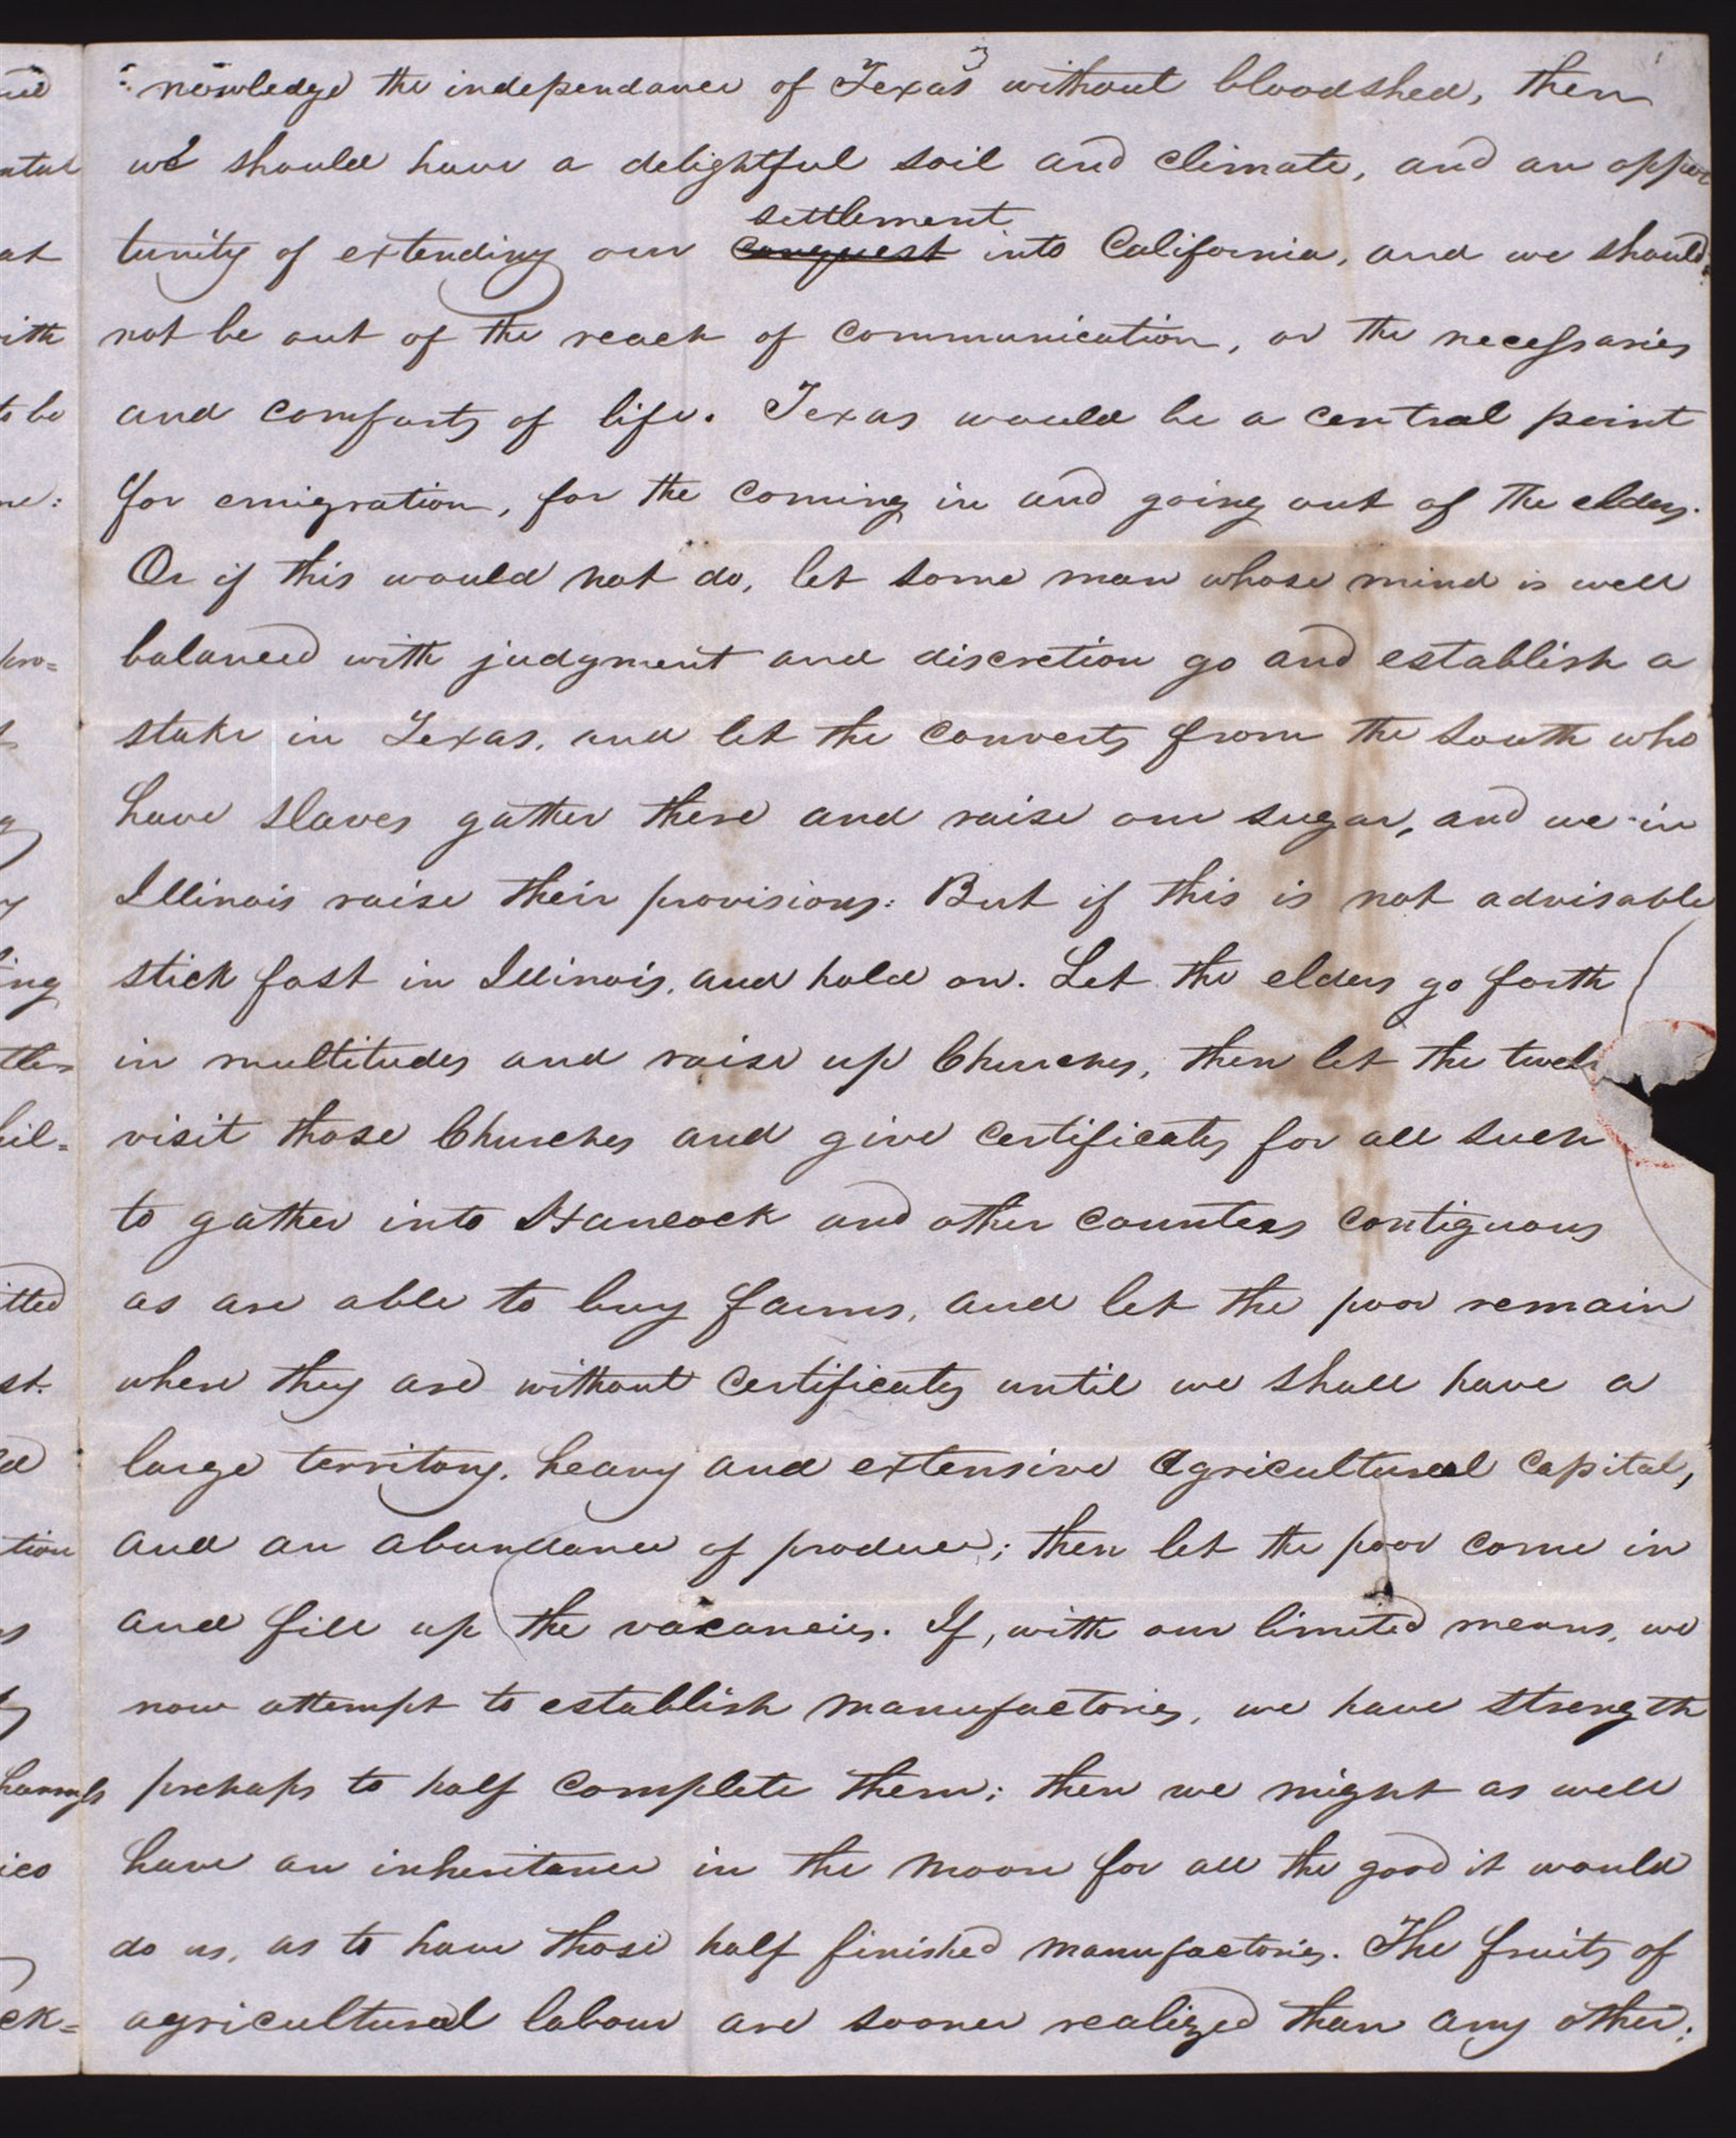 3
=nowledge the independance of Texas without bloodshed, then
we should have a delightful soil and climate, and an oppor
tunity of extending our conquest settlement into California, and we should
not be out of the reach of communication, or the necessaries
and comforts of life. Texas would be a central point
for emigration, for the coming in and going out of the elders.
Or if this would not do, let some man whose mind is well
balanced with judgment and discretion go and establish a
stake in Texas, and let the converts from the south who
have slaves gather there and raise our sugar, and we in
Illinois raise their provisions: But if this is not advisable
stick fast in Illinois, and hold on. Let the elders go forth
in multitudes and raise up Churches, then let the twel
visit those Churches and give certificates for all such
to gather into Hancock and other counties contiguous
as are able to buy farms, and let the poor remain
where they are without certificates until we shall have a
large territory, heavy and extensive agricultural capital,
and an abundance of produce; then let the poor come in
and fill up the vacancies. If, with our limited means, we
now attempt to establish manufactories, we have strength
perhaps to half complete them; then we might as well
have an inheritance in the moon for all the good it would
do us, as to have those half finished manufactories. The fruits of
agricultural labour are sooner realized than any other;